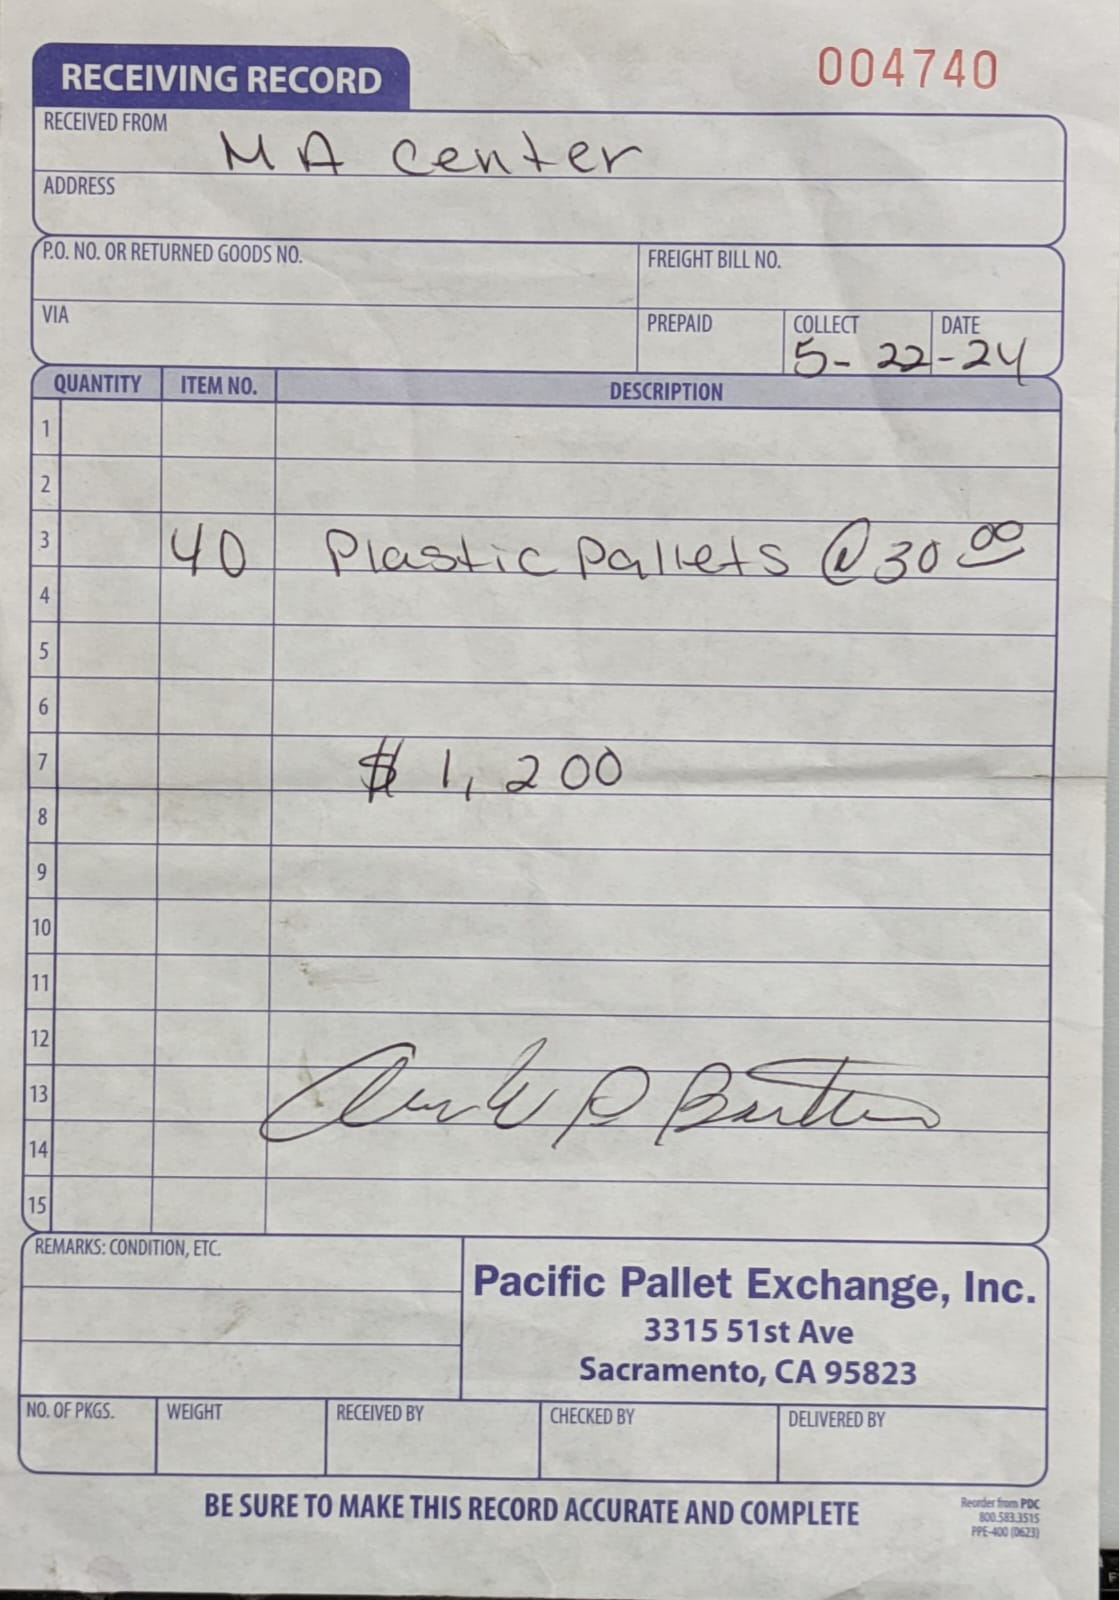 RECEIVING RECORD
004740
RECEIVED FROM
MA center
ADDRESS
P.O. NO. OR RETURNED GOODS NO.
FREIGHT BILL NO.
VIA
PREPAID
COLLECT
DATE
5-22-24
QUANTITY ITEM NO. DESCRIPTION
1
2
3 40 Plastic Pallets @ 30 00
4
5
6
7 $ 1,200
8
9
10
11
12
13
14
15
REMARKS: CONDITION, ETC.
Pacific Pallet Exchange, Inc.
3315 51st Ave
Sacramento, CA 95823
NO. OF PKGS. WEIGHT RECEIVED BY CHECKED BY DELIVERED BY
BE SURE TO MAKE THIS RECORD ACCURATE AND COMPLETE
Reorder from PDC
800.583.3515
PPE-400 (0623)